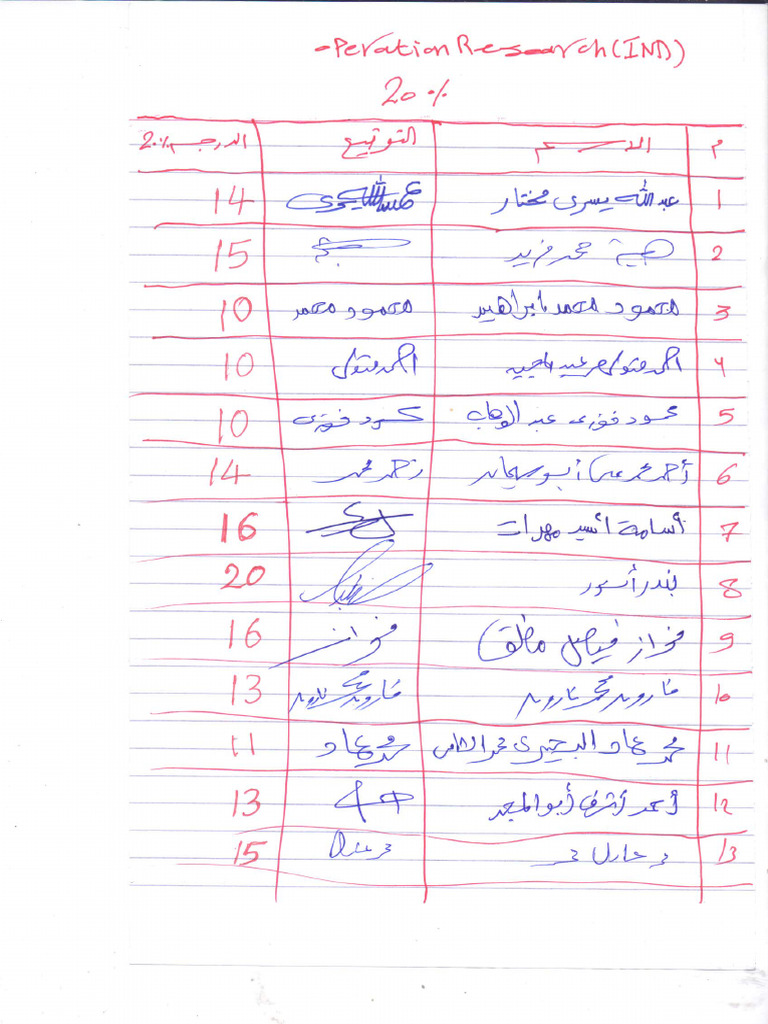 Operation Research (IND)
20 %
م الاسم التوقيع الدرجة 20%
1 عبدالله يسرى مختار 14
2 محمد فريد 15
3 محمود محمد ابراهيم محمود محمد 10
4 احمد متولى 10
5 محمود فوزى عبد الوهاب محمود فوزى 10
6 أحمد محمد أحمد محمد 14
7 أسامة السيد مهران 16
8 بندر 20
9 فواز فيصل مطلق فواز 16
10 فاروق محمد فاروق فاروق محمد فاروق 13
11 محمد عماد البحيرى محمد عماد 11
12 أحمد أشرف أبوالمجد 13
13 عادل 15